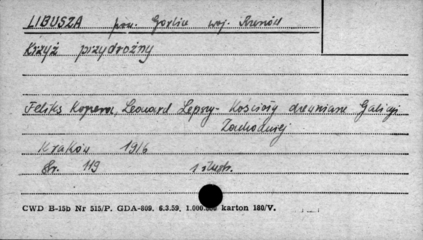 LIBUSZA pow. Gorlice woj. Rzeszów
Krzyż przydrożny
Feliks Kopera, Leonard Lepszy - Kościoły drewniane Galicji
Zachodniej
Kraków 1916
Str. 119 1 ilustr.
CWD B-15b Nr 515/P. GDA-809. 6.3.59. 1.000.000 karton 180/V.